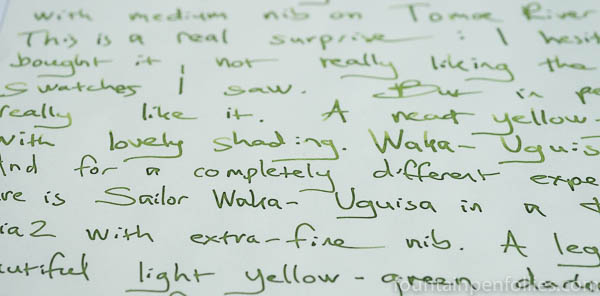 with medium nib on Tomoe River
This is a real surprise : I hesit
bought it, not really liking the
swatches I saw. But in pe
really like it. A neat yellow-
with lovely shading. Waka-Uguis
And for a completely different expe
re is Sailor Waka-Uguisa in a
ia2 with extra-fine nib. A leg
autiful light yellow-green
fountainpenfollies.com